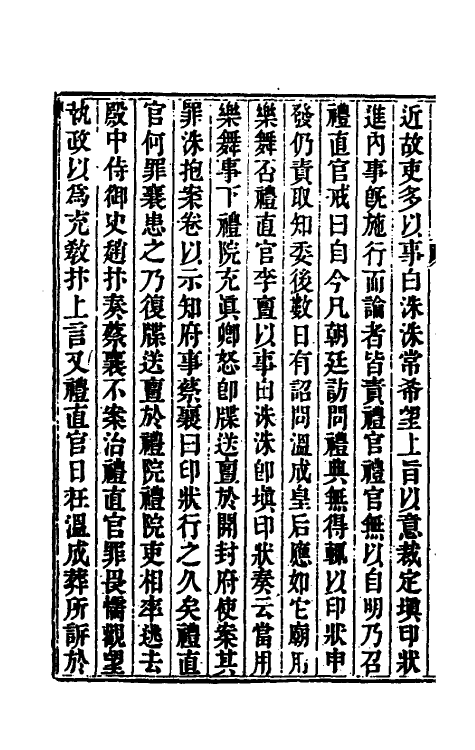 近故吏多以事白洙洙常希望上旨以意裁定塡印狀
進內事旣施行而論者皆責禮官禮官無以自明乃召
禮直官戒曰自今凡朝廷訪問禮典無得輒以印狀申
發仍責取知委後數日有詔問溫成皇后應如它廟用
樂舞否禮直官李亶以事白洙洙卽塡印狀奏云當用
樂舞事下禮院充眞卿怒卽牒送亶於開封府使案其
罪洙抱案卷以示知府事蔡襄曰印狀行之久矣禮直
官何罪襄患之乃復牒送亶於禮院禮院吏相率逃去
殿中侍御史趙抃奏蔡襄不案治禮直官罪畏懦觀望
執政以爲充敎抃上言又禮直官日在溫成葬所訴於